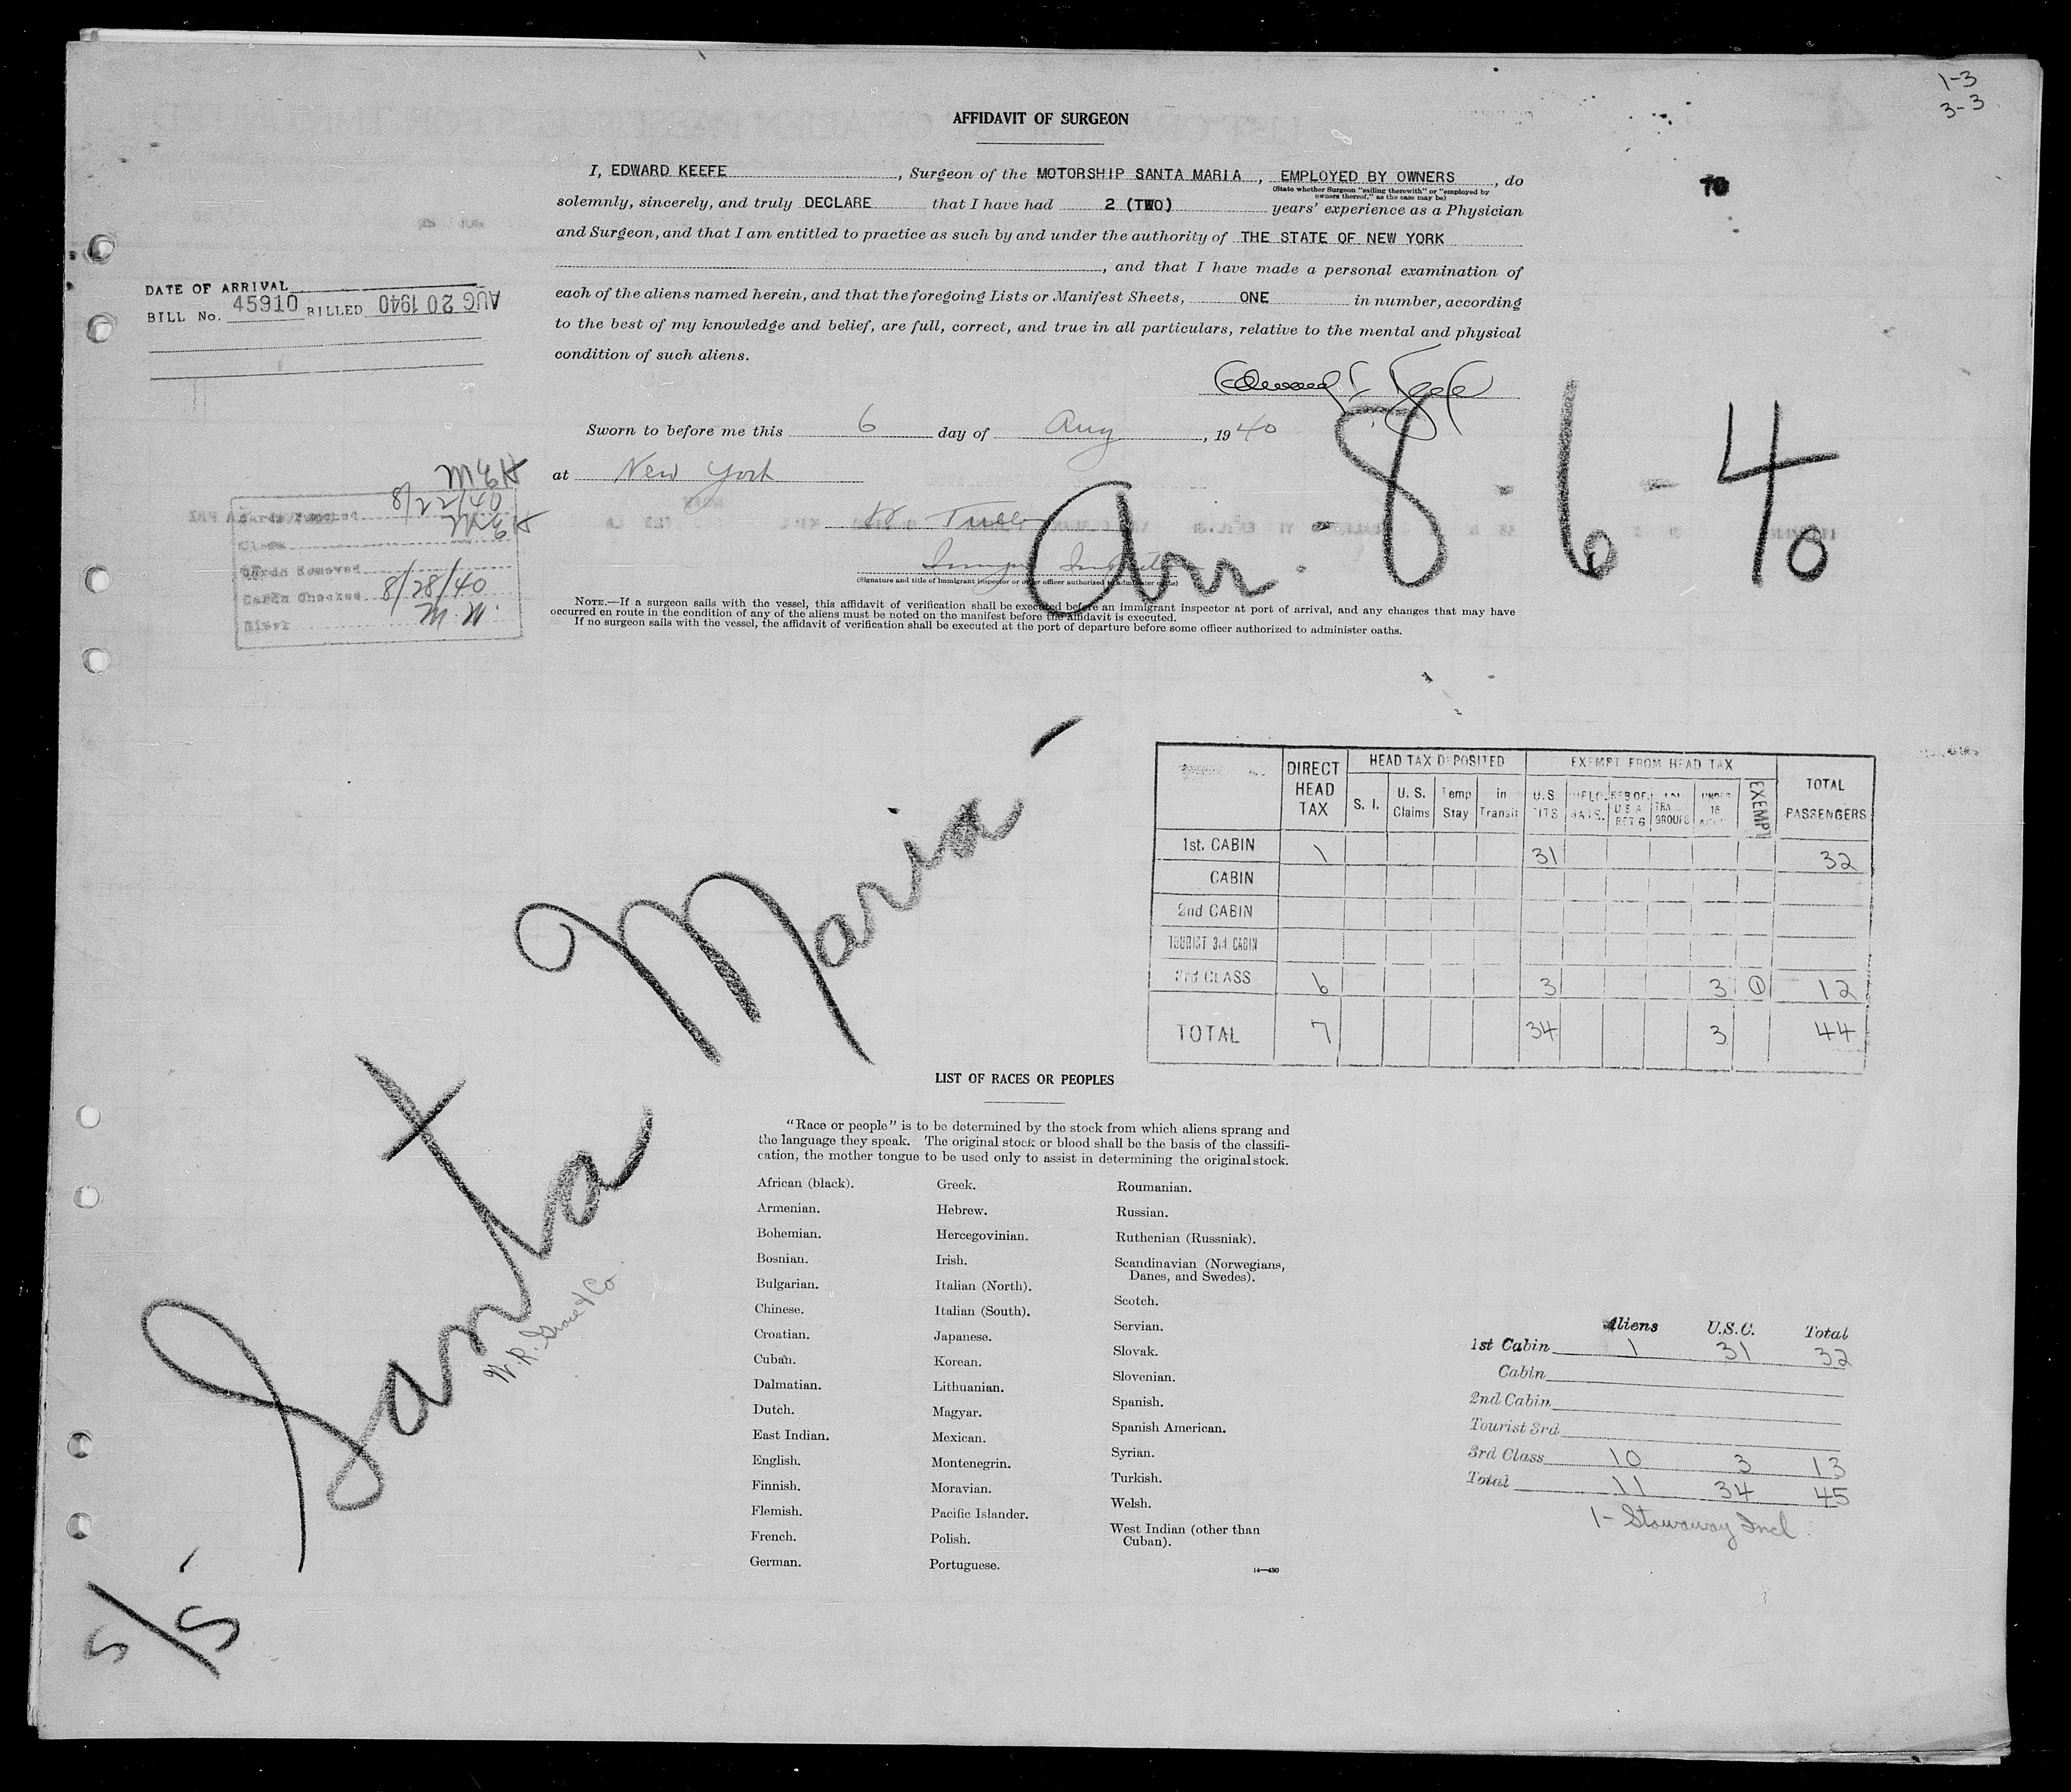 1-3
3-3
AFFIDAVIT OF SURGEON
70
I, EDWARD KEEFE, Surgeon of the MOTORSHIP SANTA MARIA, EMPLOYED BY OWNERS, do
(State whether Surgeon "sailing therewith" or "employed by
owners thereof," as the case may be)
solemnly, sincerely, and truly DECLARE that I have had 2 (TWO) years' experience as a Physician
and Surgeon, and that I am entitled to practice as such by and under the authority of THE STATE OF NEW YORK
, and that I have made a personal examination of
each of the aliens named herein, and that the foregoing Lists or Manifest Sheets, ONE in number, according
to the best of my knowledge and belief, are full, correct, and true in all particulars, relative to the mental and physical
condition of such aliens.
DATE OF ARRIVAL
BILL No. 45910 BILLED AUG 20 1940
Sworn to before me this 6 day of Aug, 1940
at New York
Arr. 8-6-40
(Signature and title of Immigrant inspector or other officer authorized to administer oaths)
MEH
8/22/40
MEH
Clerk
Cards Removed
Cards Checked 8/28/40
Clerk M.W.
NOTE.—If a surgeon sails with the vessel, this affidavit of verification shall be executed before an immigrant inspector at port of arrival, and any changes that may have
occurred en route in the condition of any of the aliens must be noted on the manifest before the affidavit is executed.
If no surgeon sails with the vessel, the affidavit of verification shall be executed at the port of departure before some officer authorized to administer oaths.
S/S Santa Maria
W. R. Grace & Co.
DIRECT HEAD TAX HEAD TAX DEPOSITED EXEMPT FROM HEAD TAX TOTAL PASSENGERS
S. I. U. S. Claims Temp Stay in Transit U.S. CITS UNDER 16 EXEMPT
1st. CABIN 1 31 32
CABIN
2nd CABIN
TOURIST 3rd CABIN
3rd CLASS 6 3 3 1 12
TOTAL 7 34 3 44
LIST OF RACES OR PEOPLES
"Race or people" is to be determined by the stock from which aliens sprang and
the language they speak. The original stock or blood shall be the basis of the classifi-
cation, the mother tongue to be used only to assist in determining the original stock.
African (black).
Armenian.
Bohemian.
Bosnian.
Bulgarian.
Chinese.
Croatian.
Cuban.
Dalmatian.
Dutch.
East Indian.
English.
Finnish.
Flemish.
French.
German.
Greek.
Hebrew.
Hercegovinian.
Irish.
Italian (North).
Italian (South).
Japanese.
Korean.
Lithuanian.
Magyar.
Mexican.
Montenegrin.
Moravian.
Pacific Islander.
Polish.
Portuguese.
Roumanian.
Russian.
Ruthenian (Russniak).
Scandinavian (Norwegians,
Danes, and Swedes).
Scotch.
Servian.
Slovak.
Slovenian.
Spanish.
Spanish American.
Syrian.
Turkish.
Welsh.
West Indian (other than
Cuban).
14—430
Aliens U.S.C. Total
1st Cabin 1 31 32
Cabin
2nd Cabin
Tourist 3rd
3rd Class 10 3 13
Total 11 34 45
1- Stowaway Incl